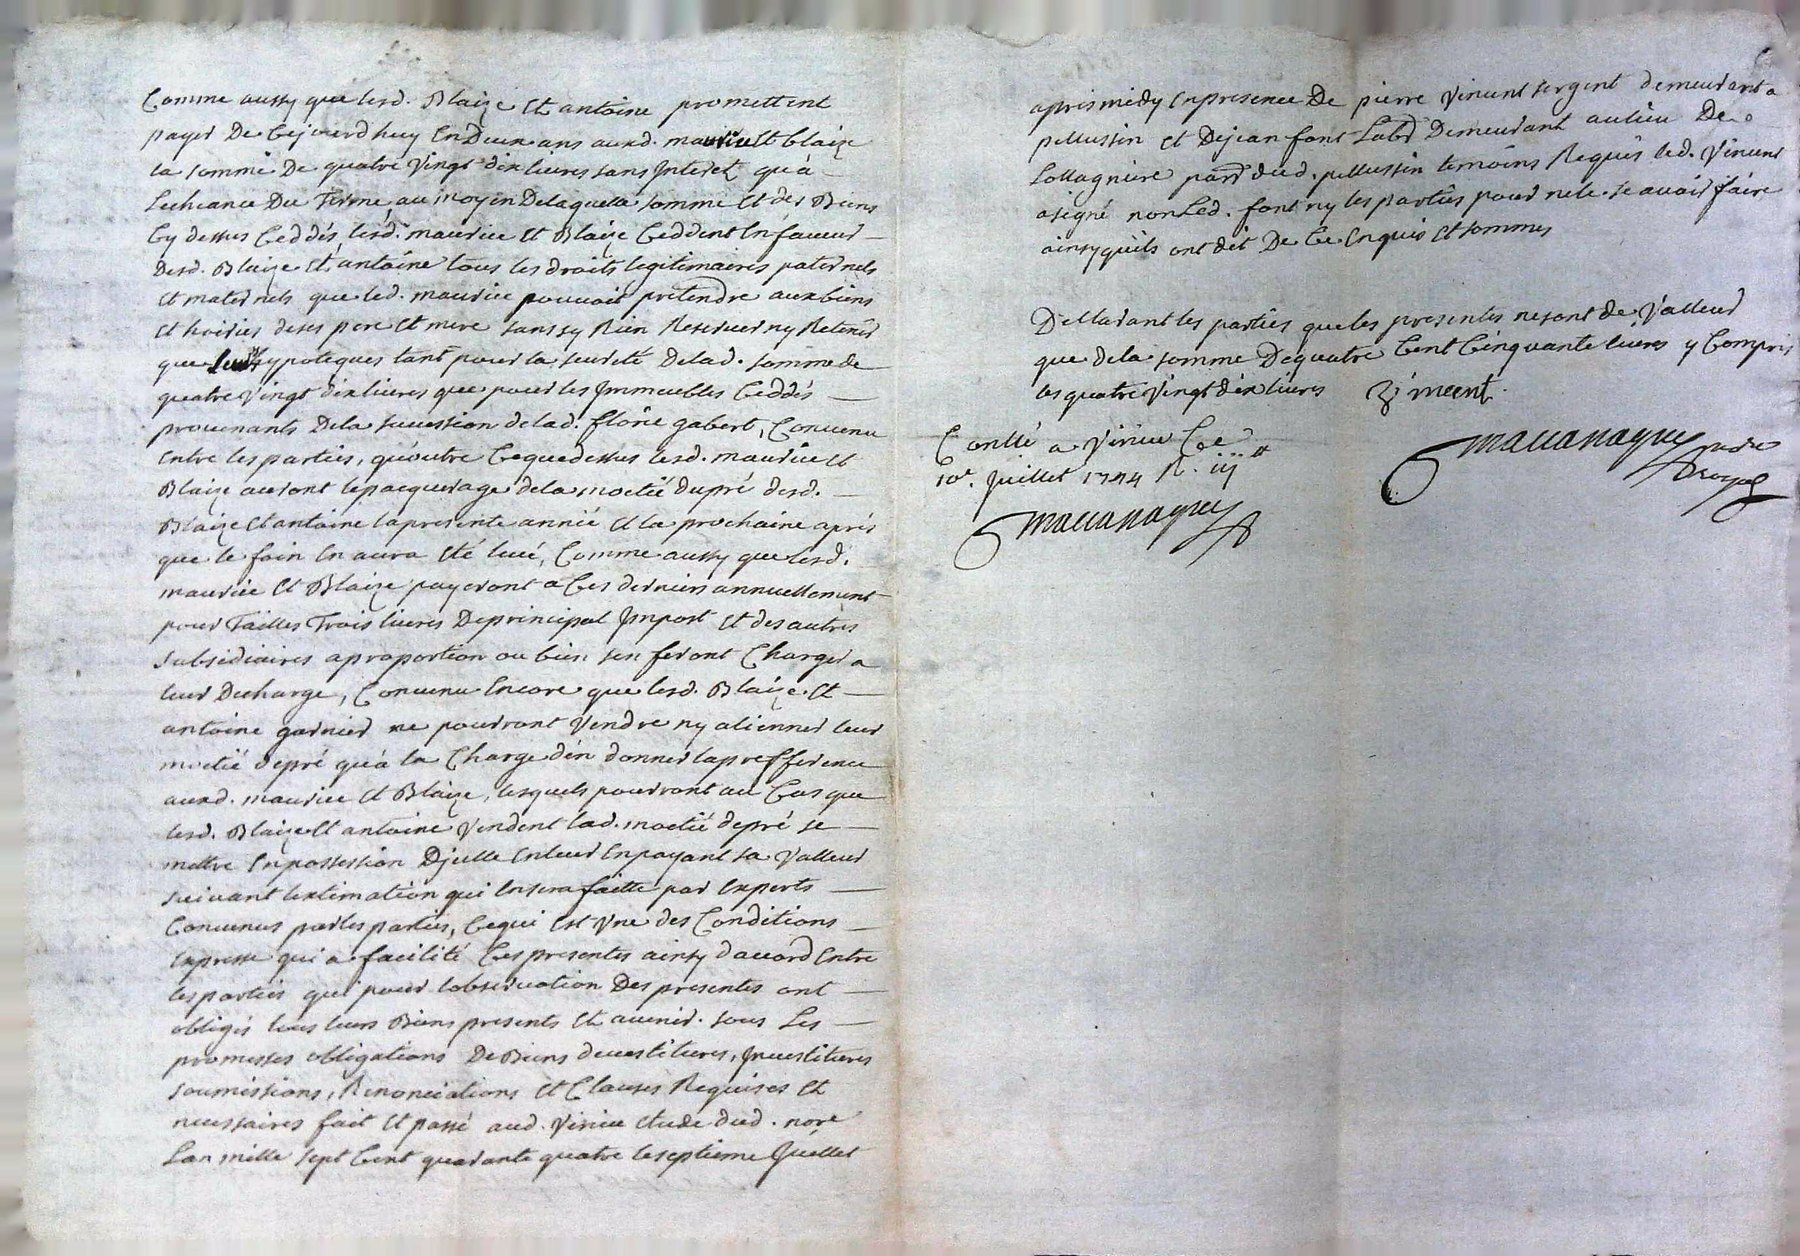 Comme aussy que lesd. Blaize et antoine promettent
payer De Cejourd'huy En Deux ans auxd. maurice et blaize
la somme De quatre Vingt dix livres sans Interet qu'à
Lecheance Du Terme, au moyen Delaquelle somme et des Biens
Cy dessus Ceddés, lesd. maurice et Blaize Ceddent En faveur
Desd. Blaize et antoine tous les droits legitimaires paternels
et maternels que led. maurice pouvoit pretendre aux biens
et hoiries deses pere et mere sans sy Rien Reserver ny Retenir
que hypoteques tant pour la seureté Delad. somme de
quatre Vingt dix livres que pour les Immeubles Ceddés
provenants Dela succession delad. florie gabert, Convenu
Entre les parties, qu'outre Ceque dessus lesd. maurice et
Blaize auront le pacquerage dela moetié dupré desd.
Blaize et antoine la presente année et la prochaine aprés
que le foin En aura eté levé, Comme aussy que lesd.
maurice et Blaize payeront a Ces derniers annuellement
pour Tailles Trois livres De principal Impost et des autres
subsidiaires a proportion ou bien sen feront Charger a
leur Decharge, Convenu Encore que lesd. Blaize et
antoine garnier ne pourront Vendre ny alienner leur
moetié depré qu'à la Charge d'en donner la prefference
auxd. maurice et Blaize, lesquels pourront au Cas que
lesd. Blaize et antoine Vendent lad. moetié depré se
mettre En possession D'jcelle En leur En payant sa Valleur
suivant lextimation qui En sera faitte par Experts
Convenus par les parties, Cequi Est Vne des Conditions
Expresse qui a facilité Ces presentes ainsy d'accord Entre
les parties qui pour lobservation Des presentes ont
obligés tous leurs Biens presents et avenir. sous Les
promesses obligations De Biens devestitures, Jnvestitures
soumissions, Renonciations et Clauses Requises et
necessaires fait et passé aud. Virieu Etude dud. nore
Lan mille sept Cent quarante quatre le septieme Juillet
apris midy En presence De pierre Vincent sergent demeurant a
pellussin et De jean font Labr Demeurant au lieu De
Lollagniere parr dud. pellussin temoins Requis led. Vincent
a signé non Led. font ny les parties pour ne le scavoir faire
ainsy quils ont dit De Ce Enquis et sommes
Dellarant les parties que les presentes ne sont de Valleur
que de la somme De quatre Cent Cinquante livres y Compris
les quatre Vingt dix livres Vincent
Conllé a Virieu Ce
10e. Juillet 1744 R. iij ll